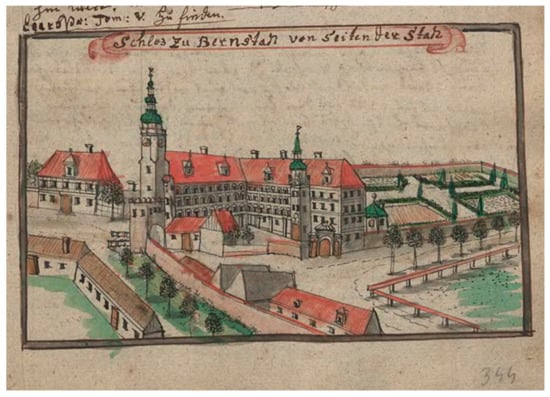 Tom: V. Zu finden.
Schloß Zu Bernstatt von Seiten der Statt
344